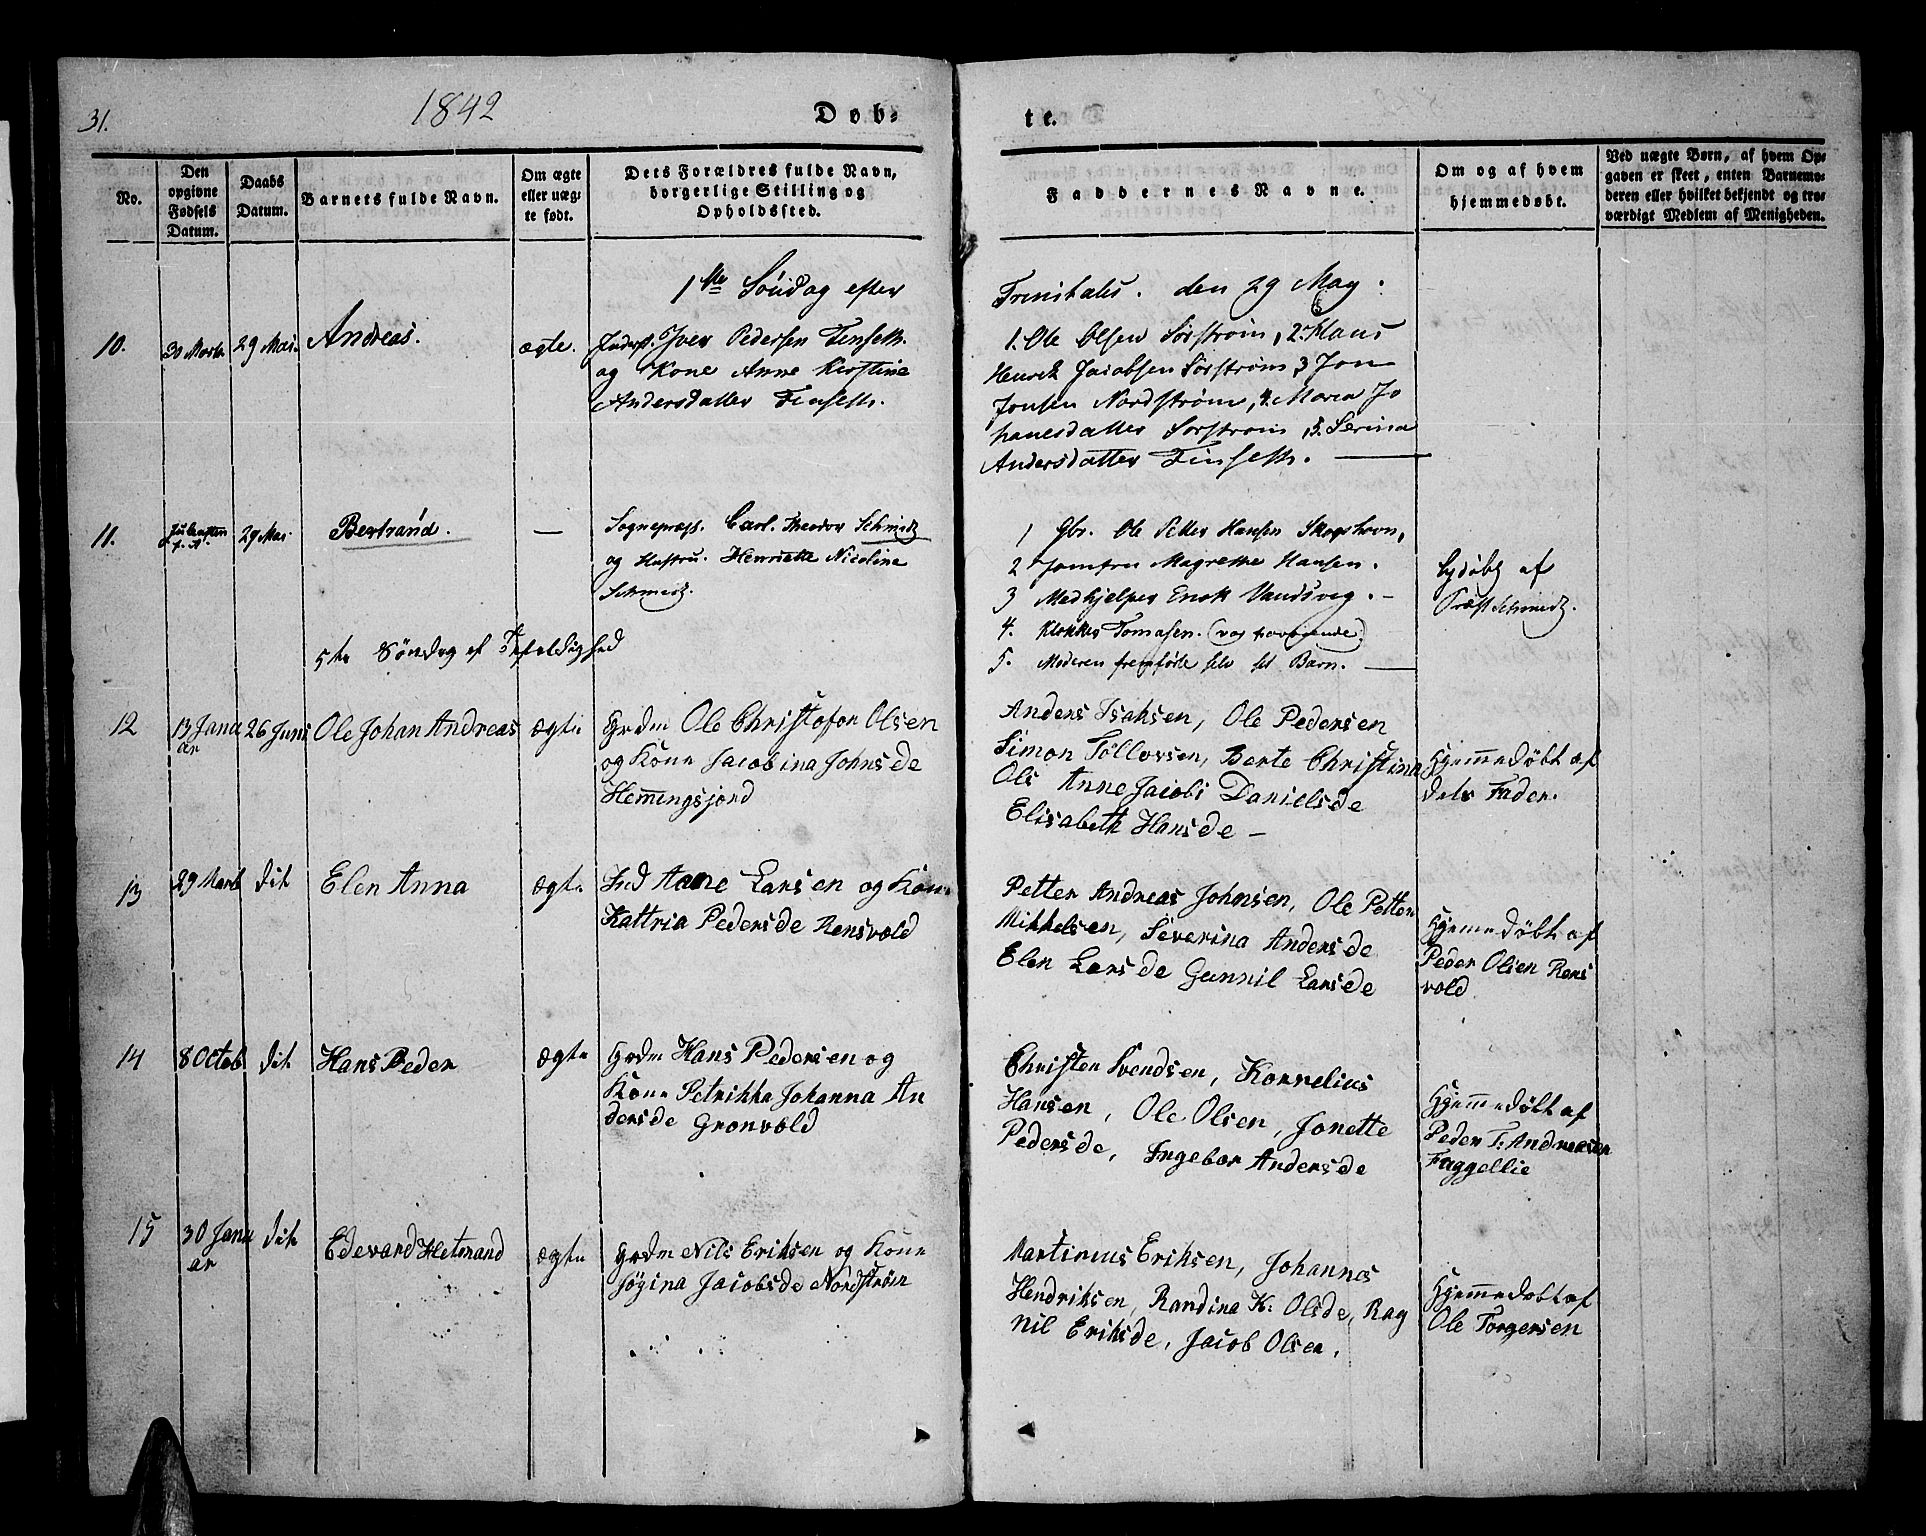 31.
1842
Døb-
te.
No.
Den opgivne Fødsels Datum.
Daabs Datum.
Barnets fulde Navn.
Om ægte eller uæg- te født.
Dets Forældres fulde Navn, borgerlige Stilling og Opholdssted.
Faddernes Navne.
Om og af hvem hjemmedøbt.
Ved uægte Børn, af hvem Op- gaven er skeet, enten Barnemo- deren eller hvilket bekjendt og tro- værdigt Medlem af Menigheden.
1ste Søndag efter
Trinitatis. den 29 May.
10.
30 Marts
29 Mai.
Andreas.
ægte.
Iver Pedersen Finseth.
og Kone Anne Kirstine
Andersdatter Finseth.
1. Ole Olsen Sørstrøm, 2. Klaus
Henrik Jacobsen Sørstrøm, 3 Jon
Jonsen Nordstrøm, 4. Maria Jo
hanesdatter Sørstrøm, 5. Serina
Andersdatter Finseth.
11.
29 Mai
Bertrand.
—
Sognepræst. Carl Theodor Schmidt
og Hustru. Henriette Nicoline
Schmidt.
1 Gbr. Ole Petter Hansen Skogshavn,
2 Jomfru Magrethe Hansen.
3 Medhjelper Enok Vandsveg.
4. Klokker Tomasen.
5. Moderen fremførte selv sit Barn.
døbt af
Præst Schmidt.
5te Søndag af Trefoldighed
12
13 Janu
ar
26 Juni
Ole Johan Andreas
ægte
Grdm Ole Christofor Olsen
og Kone Jacobina Johnsde
Hemingsjord
Anders Isaksen, Ole Pedersen
Simon Tollovsen, Berte Christina
Ols Anne Jacobi Danielsde
Elisabeth Hansde —
Hjemmedøbt af
dets Fader.
13
29 Marts
dit
Elen Anna
ægte
Ind Aane Larsen og Kone
Kattria Pedersde Rensvold
Petter Andreas Johnsen, Ole Petter
Mikkelsen, Severina Andersde
Elen Larsde Gunnil Larsde
Hjemmedøbt af
Peder Olsen Rens
vold
14
8 Octob
dit
Hans Peder
ægte
Grdm Hans Pedersen og
Kone Petrikka Johanna An
dersde Gronvold
Christen Svendsen, Kornelius
Hansen, Ole Olsen, Jonette
Pedersde, Ingebor Andersde
Hjemmedøbt af
Peder T: Andreasen
Faggellie
15
30 Janu
ar
dit
Edevard Hetmand
ægte
Grdm Nils Eriksen og Kone
Jøgina Jacobsde Nordstrøm
Martinus Eriksen, Johannes
Hendriksen, Randina K: Olsde, Rag
nil Eriksde, Jacob Olsen,
Hjemmedøbt af
Ole Torgersen